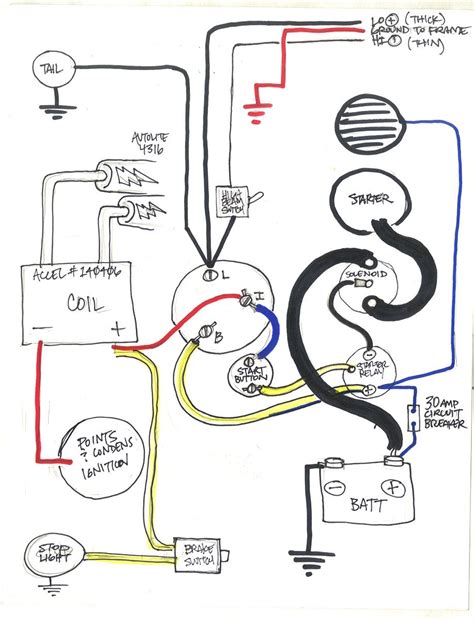 LO ⊕ (THICK)
GROUND TO FRAME
HI ⊕ (THIN)
TAIL
AUTOLITE
4316
HI/LO
BEAM
SWITCH
STARTER
SOLENOID
ACCEL # 140406
COIL
- +
L
I
B
START
BUTTON
STARTER
RELAY
-
+
30 AMP
CIRCUIT
BREAKER
POINTS
& CONDENS
IGNITION
- +
BATT
STOP
LIGHT
BRAKE
SWITCH